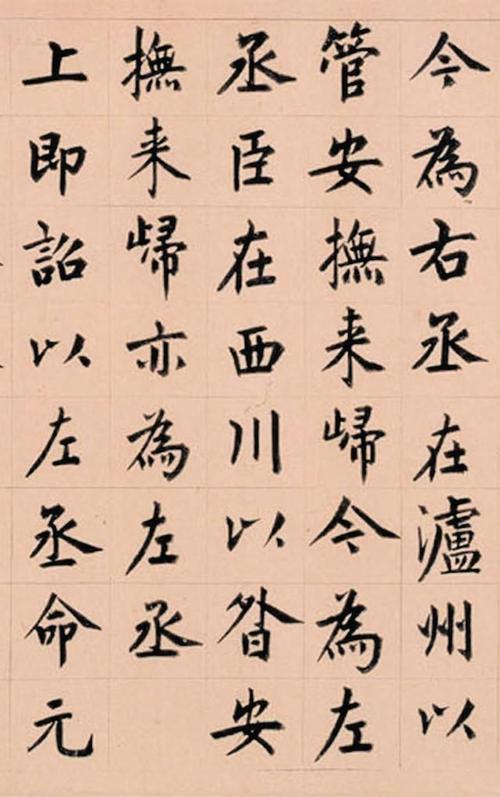 今為右丞在瀘州以
管安撫来歸今為左
丞臣在西川以昝安
撫来歸亦為左丞
上即詔以左丞命元